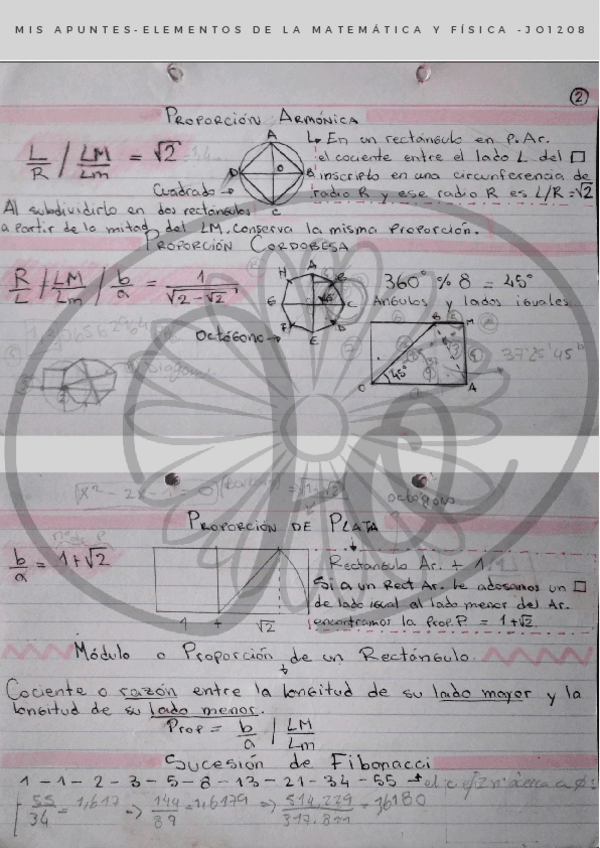 MIS APUNTES-ELEMENTOS DE LA MATEMÁTICA Y FÍSICA -JO1208
②
PROPORCIÓN ARMÓNICA
L/R / LM/Lm = √2
A
B
C
D
Cuadrado →
↳ En un rectángulo en P. Ar.
el cociente entre el lado L del □
inscripto en una circunferencia de
radio R y ese radio R es L/R = √2
Al subdividirlo en dos rectángulos
a partir de la mitad del LM. conserva la misma Proporción.
PROPORCIÓN CORDOBESA
R/L / LM/Lm / b/a = 1/√2-√2
H A B
G C
F E D
45°
Octógono →
360° % 8 = 45°
Ángulos y lados iguales
B M
O A
45°
37°25'45"
x² - 2x - 1 = 0
octógono
PROPORCIÓN DE PLATA
b/a = 1+√2
1 + √2
Rectángulo Ar. + 1
Si a un Rect Ar. le adosamos un □
de lado igual al lado menor del Ar.
encontramos la Prop. P = 1+√2.
Módulo o Proporción de un Rectángulo
Cociente o razón entre la longitud de su lado mayor y la
longitud de su lado menor.
Prop = b/a / LM/Lm
Sucesión de Fibonacci
1 - 1 - 2 - 3 - 5 - 8 - 13 - 21 - 34 - 55
55/34 = 1,617 → 144/89 = 1,6179 ⇒ 514.229/317.811 = 1,6180